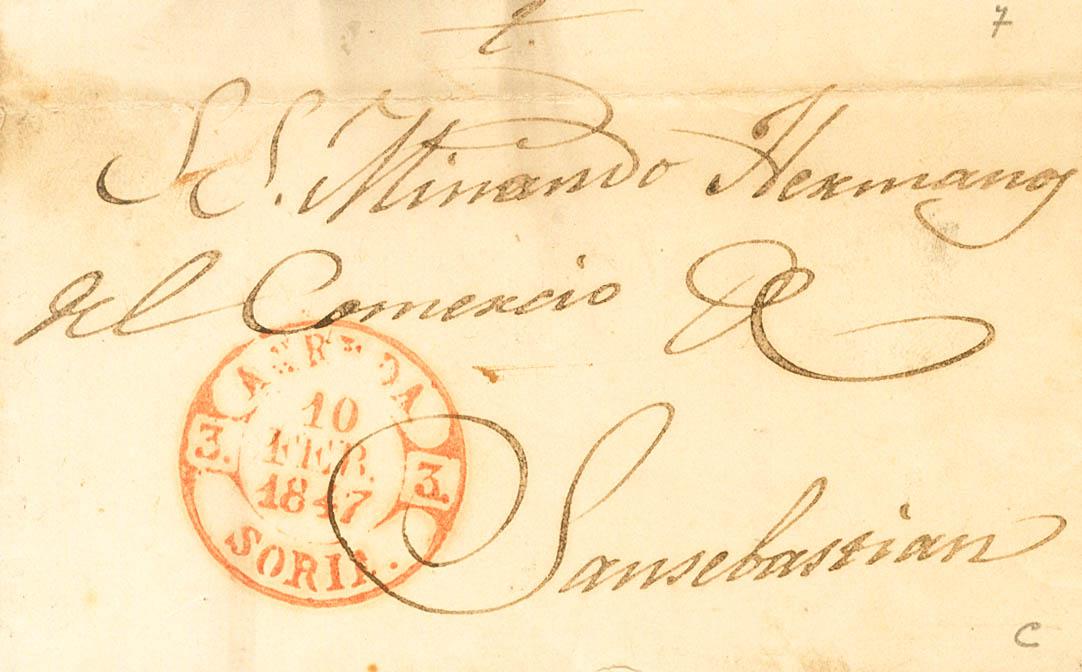 7
S.S. Minondo Hermanos
del Comercio de
Sansebastian
AGREDA
10
FEB.
1847
3. 3.
SORIA.
C